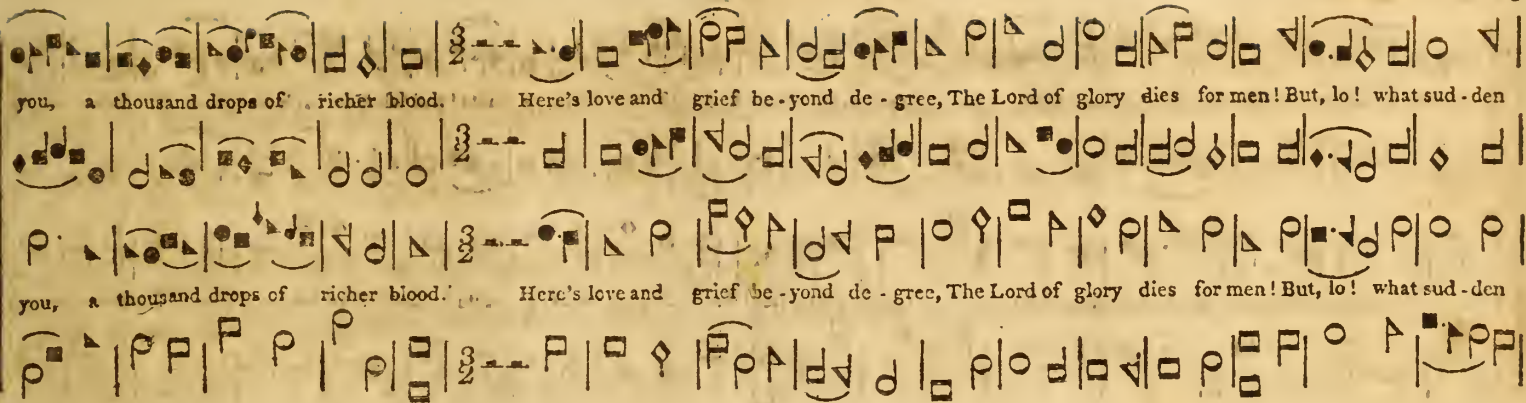 3/2
you, a thousand drops of richer blood. Here's love and grief be-yond de-gree, The Lord of glory dies for men! But, lo! what sud-den
3/2
3/2
you, a thousand drops of richer blood. Here's love and grief be-yond de-gree, The Lord of glory dies for men! But, lo! what sud-den
3/2